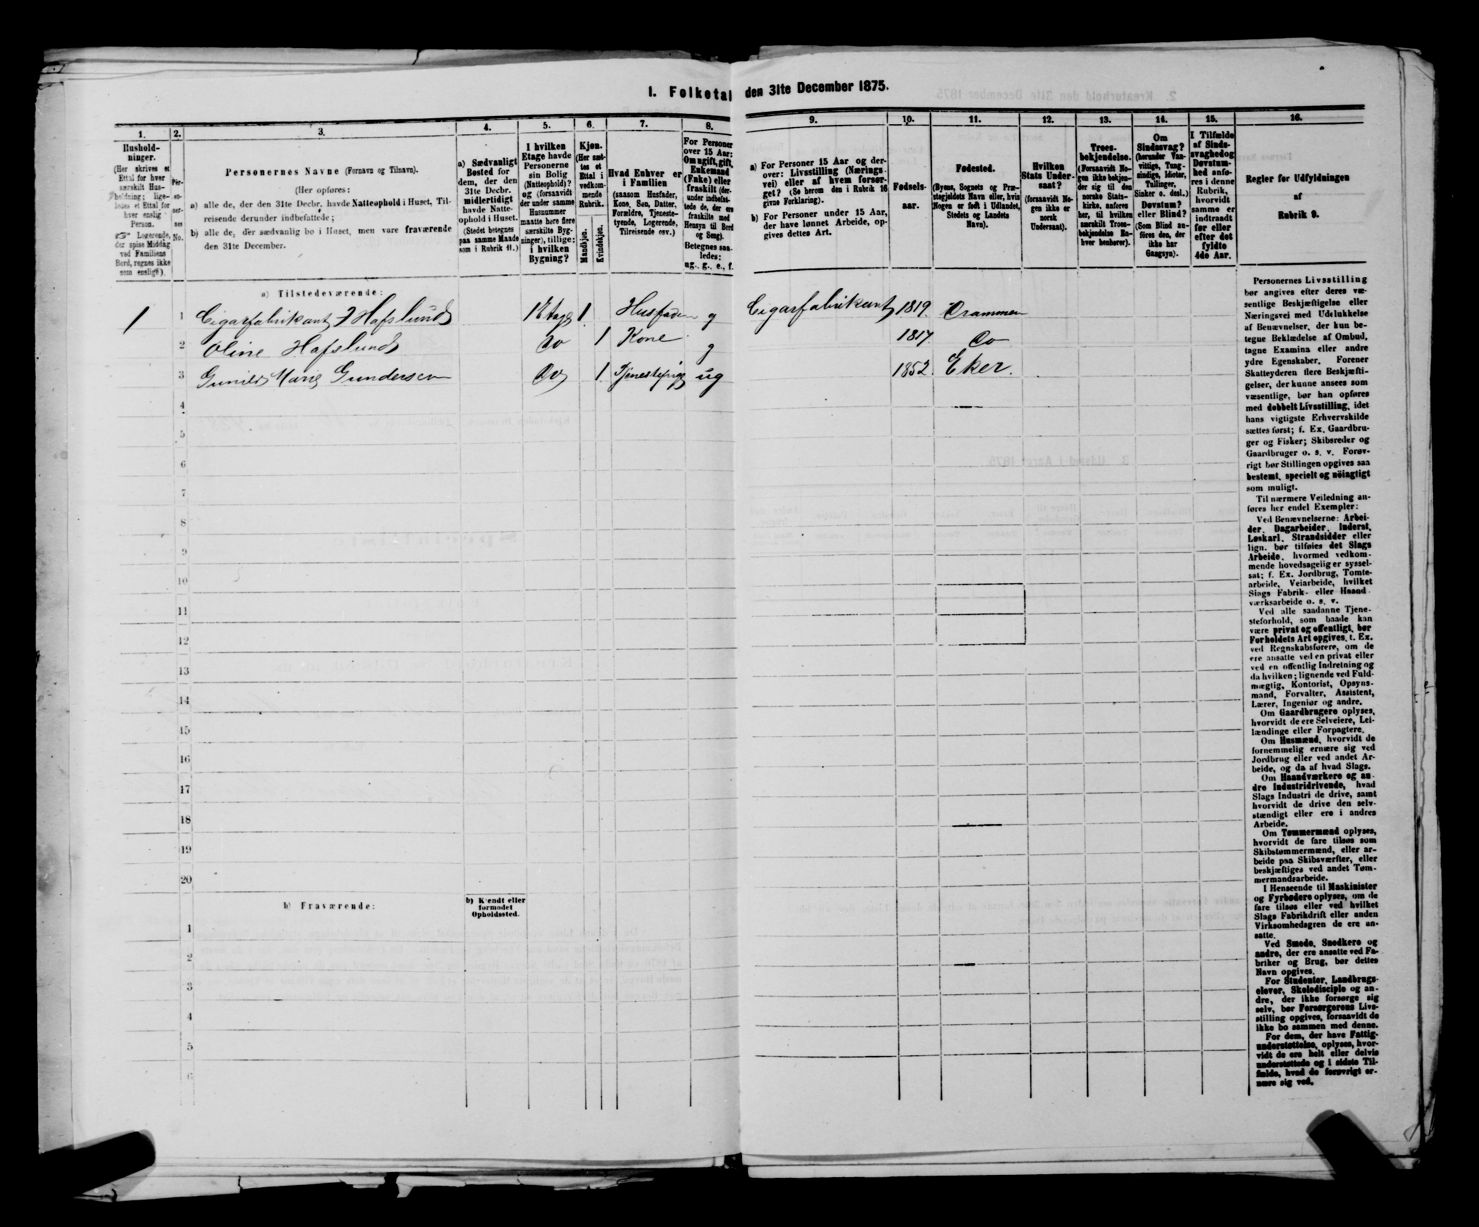 1. Folketal den 31te December 1875.
1.
Hushold-
ninger.
(Her skrives et
Ettal for hver
særskilt Hus-
holdning; lige-
ledes et Ettal for
hver enslig
Person.
Logerende,
der spise Middag
ved Familiens
Bord, regnes ikke
som enslige).
2.
Per-
so-
ner-
nes
No.
3.
Personernes Navne (Fornavn og Tilnavn).
(Her opføres:
a) alle de, der den 31te Decbr. havde Natteophold i Huset, Til-
reisende derunder indbefattede;
b) alle de, der sædvanlig bo i Huset, men vare fraværende
den 31te December.
4.
a) Sædvanligt
Bosted for
dem, der den
31te Decbr.
midlertidigt
havde Natte-
ophold i Huset.
(Stedet betegnes
paa samme Maade
som i Rubrik 11.)
5.
I hvilken
Etage havde
Personerne
sin Bolig
(Natteophold)?
og (forsaavidt
der under samme
Husnummer
maatte høre flere
særskilte Byg-
ninger), tillige:
i hvilken
Bygning?
6.
Kjøn.
(Her sæt-
tes et
Ettal i
vedkom-
mende
Rubrik.
Mandkjøn.
Kvindekjøn.
7.
Hvad Enhver er
i Familien
(saasom Husfader,
Kone, Søn, Datter,
Forældre, Tjeneste-
tyende, Logerende,
Tilreisende osv.)
8.
For Personer
over 15 Aar:
Om ugift, gift,
Enkemand
(Enke) eller
fraskilt (der-
under indbefat-
tede de, der ere
fraskilte med
Hensyn til Bord
og Seng).
Betegnes saa-
ledes:
ug., g., e., f.
9.
a) For Personer 15 Aar og der-
over: Livsstilling (Nærings-
vei) eller af hvem forsør-
get? (Se herom den i Rubrik 16
givne Forklaring).
b) For Personer under 15 Aar,
der have lønnet Arbeide, op-
gives dettes Art.
10.
Fødsels-
aar.
11.
Fødested.
(Byens, Sognets og Præ-
stegjeldets Navn eller, hvis
Nogen er født i Udlandet,
Stedets og Landets
Navn).
12.
Hvilken
Stats Under-
saat?
(forsaavidt No-
gen ikke er
norsk
Undersaat).
13.
Troes-
bekjendelse.
(Forsaavidt No-
gen ikke bekjen-
der sig til den
norske Stats-
kirke, anføres
her, til hvilken
særskilt Troes-
bekjendelse En-
hver henhører).
14.
Om
Sindssvag?
(herunder Van-
vittige, Tung-
sindige, Idioter,
Tullinger,
Sinker o. desl.)
Døvstum?
eller Blind?
(Som Blind an-
føres den, der
ikke har
Gangsyn).
15.
I Tilfælde
af Sinds-
svaghed og
Døvstum-
hed anfø-
res i denne
Rubrik,
hvorvidt
samme er
indtraadt
før eller
efter det
fyldte
4de Aar.
16.
Regler for Udfyldningen
af
Rubrik 9.
a) Tilstedeværende:
1 1 Cigarfabrikant J Hafslund 1 Etage 1 Husfader g Cigarfabrikant 1819 Drammen
2 Oline Hafslund Do 1 Kone g 1817 Do
3 Gunild Marie Gundersen Do 1 Tjenestepige ug 1852 Eker.
4
5
6
7
8
9
10
11
12
13
14
15
16
17
18
19
20
b) Fraværende:
b) Kjendt eller
formodet
Opholdssted.
1
2
3
4
5
6
Personernes Livsstilling
bør angives efter deres væ-
sentlige Beskjæftigelse eller
Næringsvei med Udelukkelse
af Benævnelser, der kun be-
tegne Beklædelse af Ombud,
tagne Examina eller andre
ydre Egenskaber. Forener
Skatteyderen flere Beskjæfti-
gelser, der kunne ansees som
væsentlige, bør han opføres
med dobbelt Livsstilling, idet
hans vigtigste Erhvervskilde
sættes først; f. Ex. Gaardbru-
ger og Fisker; Skibsreder og
Gaardbruger o. s. v. Forøv-
rigt bør Stillingen opgives saa
bestemt, specielt og nøiagtigt
som muligt.
Til nærmere Veiledning an-
føres her endel Exempler:
Ved Benævnelserne: Arbei-
der, Dagarbeider, Inderst,
Løskarl, Strandsidder eller
lign. bør tilføies det Slags
Arbeide, hvormed vedkom-
mende hovedsagelig er syssel-
sat; f. Ex. Jordbrug, Tomte-
arbeide, Veiarbeide, hvilket
Slags Fabrik- eller Haand-
værksarbeide o. s. v.
Ved alle saadanne Tjene-
steforhold, som baade kan
være privat og offentligt, bør
Forholdets Art opgives, t. Ex.
ved Regnskabsførere, om de
ere ansatte ved en privat eller
ved en offentlig Indretning og
da hvilken; lignende ved Fuld-
mægtig, Kontorist, Opsyns-
mand, Forvalter, Assistent,
Lærer, Ingeniør og andre.
Om Gaardbrugere oplyses,
hvorvidt de ere Selveiere, Lei-
lændinge eller Forpagtere.
Om Husmænd, hvorvidt de
fornemmelig ernære sig ved
Jordbrug eller ved andet Ar-
beide, og da af hvad Slags.
Om Haandværkere og an-
dre Industridrivende, hvad
Slags Industri de drive, samt
hvorvidt de drive den selv-
stændigt eller ere i andres
Arbeide.
Om Tømmermænd oplyses,
hvorvidt de fare tilsøs som
Skibstømmermænd, eller ar-
beide paa Skibsværfter, eller
beskjæftiges ved andet Tøm-
mermandsarbeide.
I Henseende til Maskinister
og Fyrbødere oplyses, om de
fare tilsøs eller ved hvilket
Slags Fabrikdrift eller anden
Virksomhedsgren de ere an-
satte.
Ved Smede, Snedkere og
andre, der ere ansatte ved Fa-
briker og Brug, bør dettes
Navn opgives.
For Studenter, Landbrugs-
elever, Skoledisciple og an-
dre, der ikke forsørge sig
selv, bør Forsørgerens Livs-
stilling opgives, forsaavidt de
ikke bo sammen med denne.
For dem, der have Fattig-
understøttelse, oplyses, hvor-
vidt de ere helt eller delvis
understøttede og i sidste Til-
fælde, hvad de forøvrigt er-
nære sig ved.